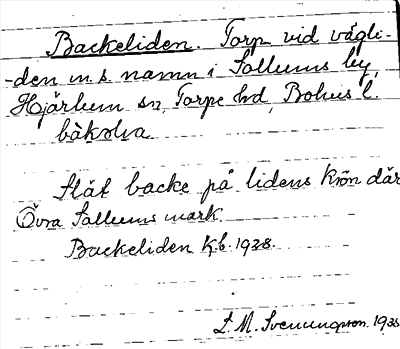 Backeliden. Torp vid vägli-
-den m. s. namn i Sollums by,
Hjärtum sn, Torpe hd, Bohus l.
Slät backe på lidens krön där
Övra Sollums mark.
Backeliden Kb. 1938.
L. M. Svenungsson. 1935